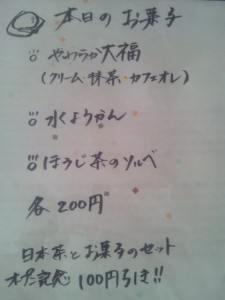 本日のお菓子
やわらか大福
(クリーム・抹茶・カフェオレ)
水ようかん
ほうじ茶のソルベ
各200円
日本茶とお菓子のセット
オープン記念 100円引き!!